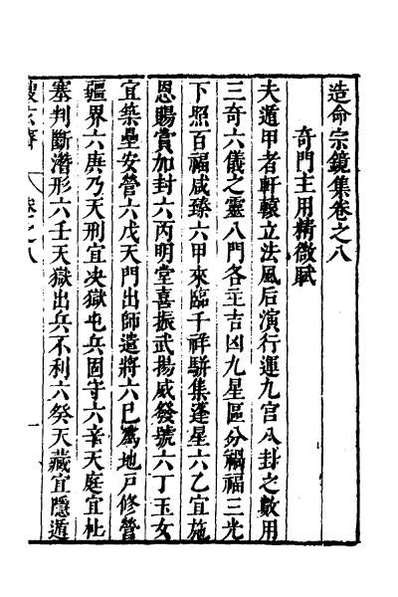 造命宗鏡集卷之八
奇門主用精微賦
夫遁甲者軒轅立法風后演行運九宮八卦之數用
三奇六儀之靈八門各主吉凶九星區分禍福三光
下照百福咸臻六甲來臨千祥駢集蓬星六乙宜施
恩賜賞加封六丙明堂喜振武揚威發號六丁玉女
宜築壘安營六戊天門出師遣將六巳為地戸修營
疆界六庚乃天刑宜决獄屯兵固守六辛天庭宜杜
塞判斷潛形六壬天獄出兵不利六癸天藏宜隱遁
卷之八
一